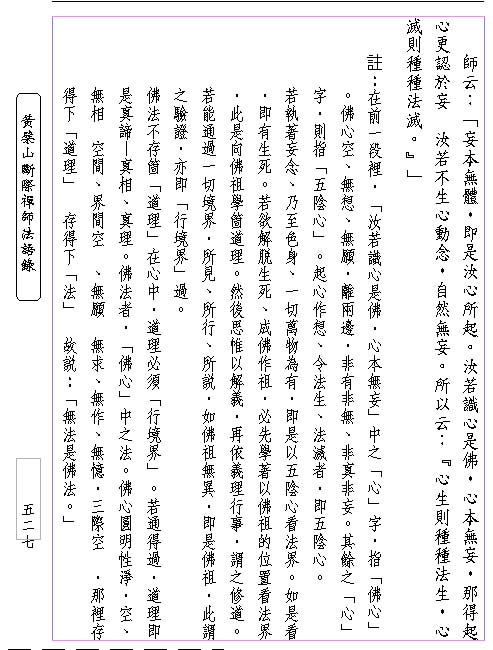 師云：「妄本無體，即是汝心所起。汝若識心是佛，心本無妄，那得起
心更認於妄　汝若不生心動念，自然無妄。所以云：『心生則種種法生，心
滅則種種法滅。』」
註：在前一段裡，「汝若識心是佛，心本無妄」中之「心」字，指「佛心」
。佛心空、無想、無願，離兩邊，非有非無、非真非妄。其餘之「心」
字，則指「五陰心」。起心作想、令法生、法滅者，即五陰心。
若執著妄念、乃至色身、一切萬物為有，即是以五陰心看法界。如是看
，即有生死。若欲解脫生死、成佛作祖，必先學著以佛祖的位置看法界
，此是向佛祖學箇道理。然後思惟以解義，再依義理行事，謂之修道。
若能通過一切境界，所見、所行、所說，如佛祖無異，即是佛祖，此謂
之驗證，亦即「行境界」過。
佛法不存箇「道理」在心中，道理必須「行境界」。若通得過，道理即
是真諦—真相、真理。佛法者，「佛心」中之法。佛心圓明性淨，空、
無相　空間、界間空　、無願　無求、無作、無憶，三際空　，那裡存
得下「道理」　存得下「法」　故說：「無法是佛法。」
黃檗山斷際禪師法語錄
五二七